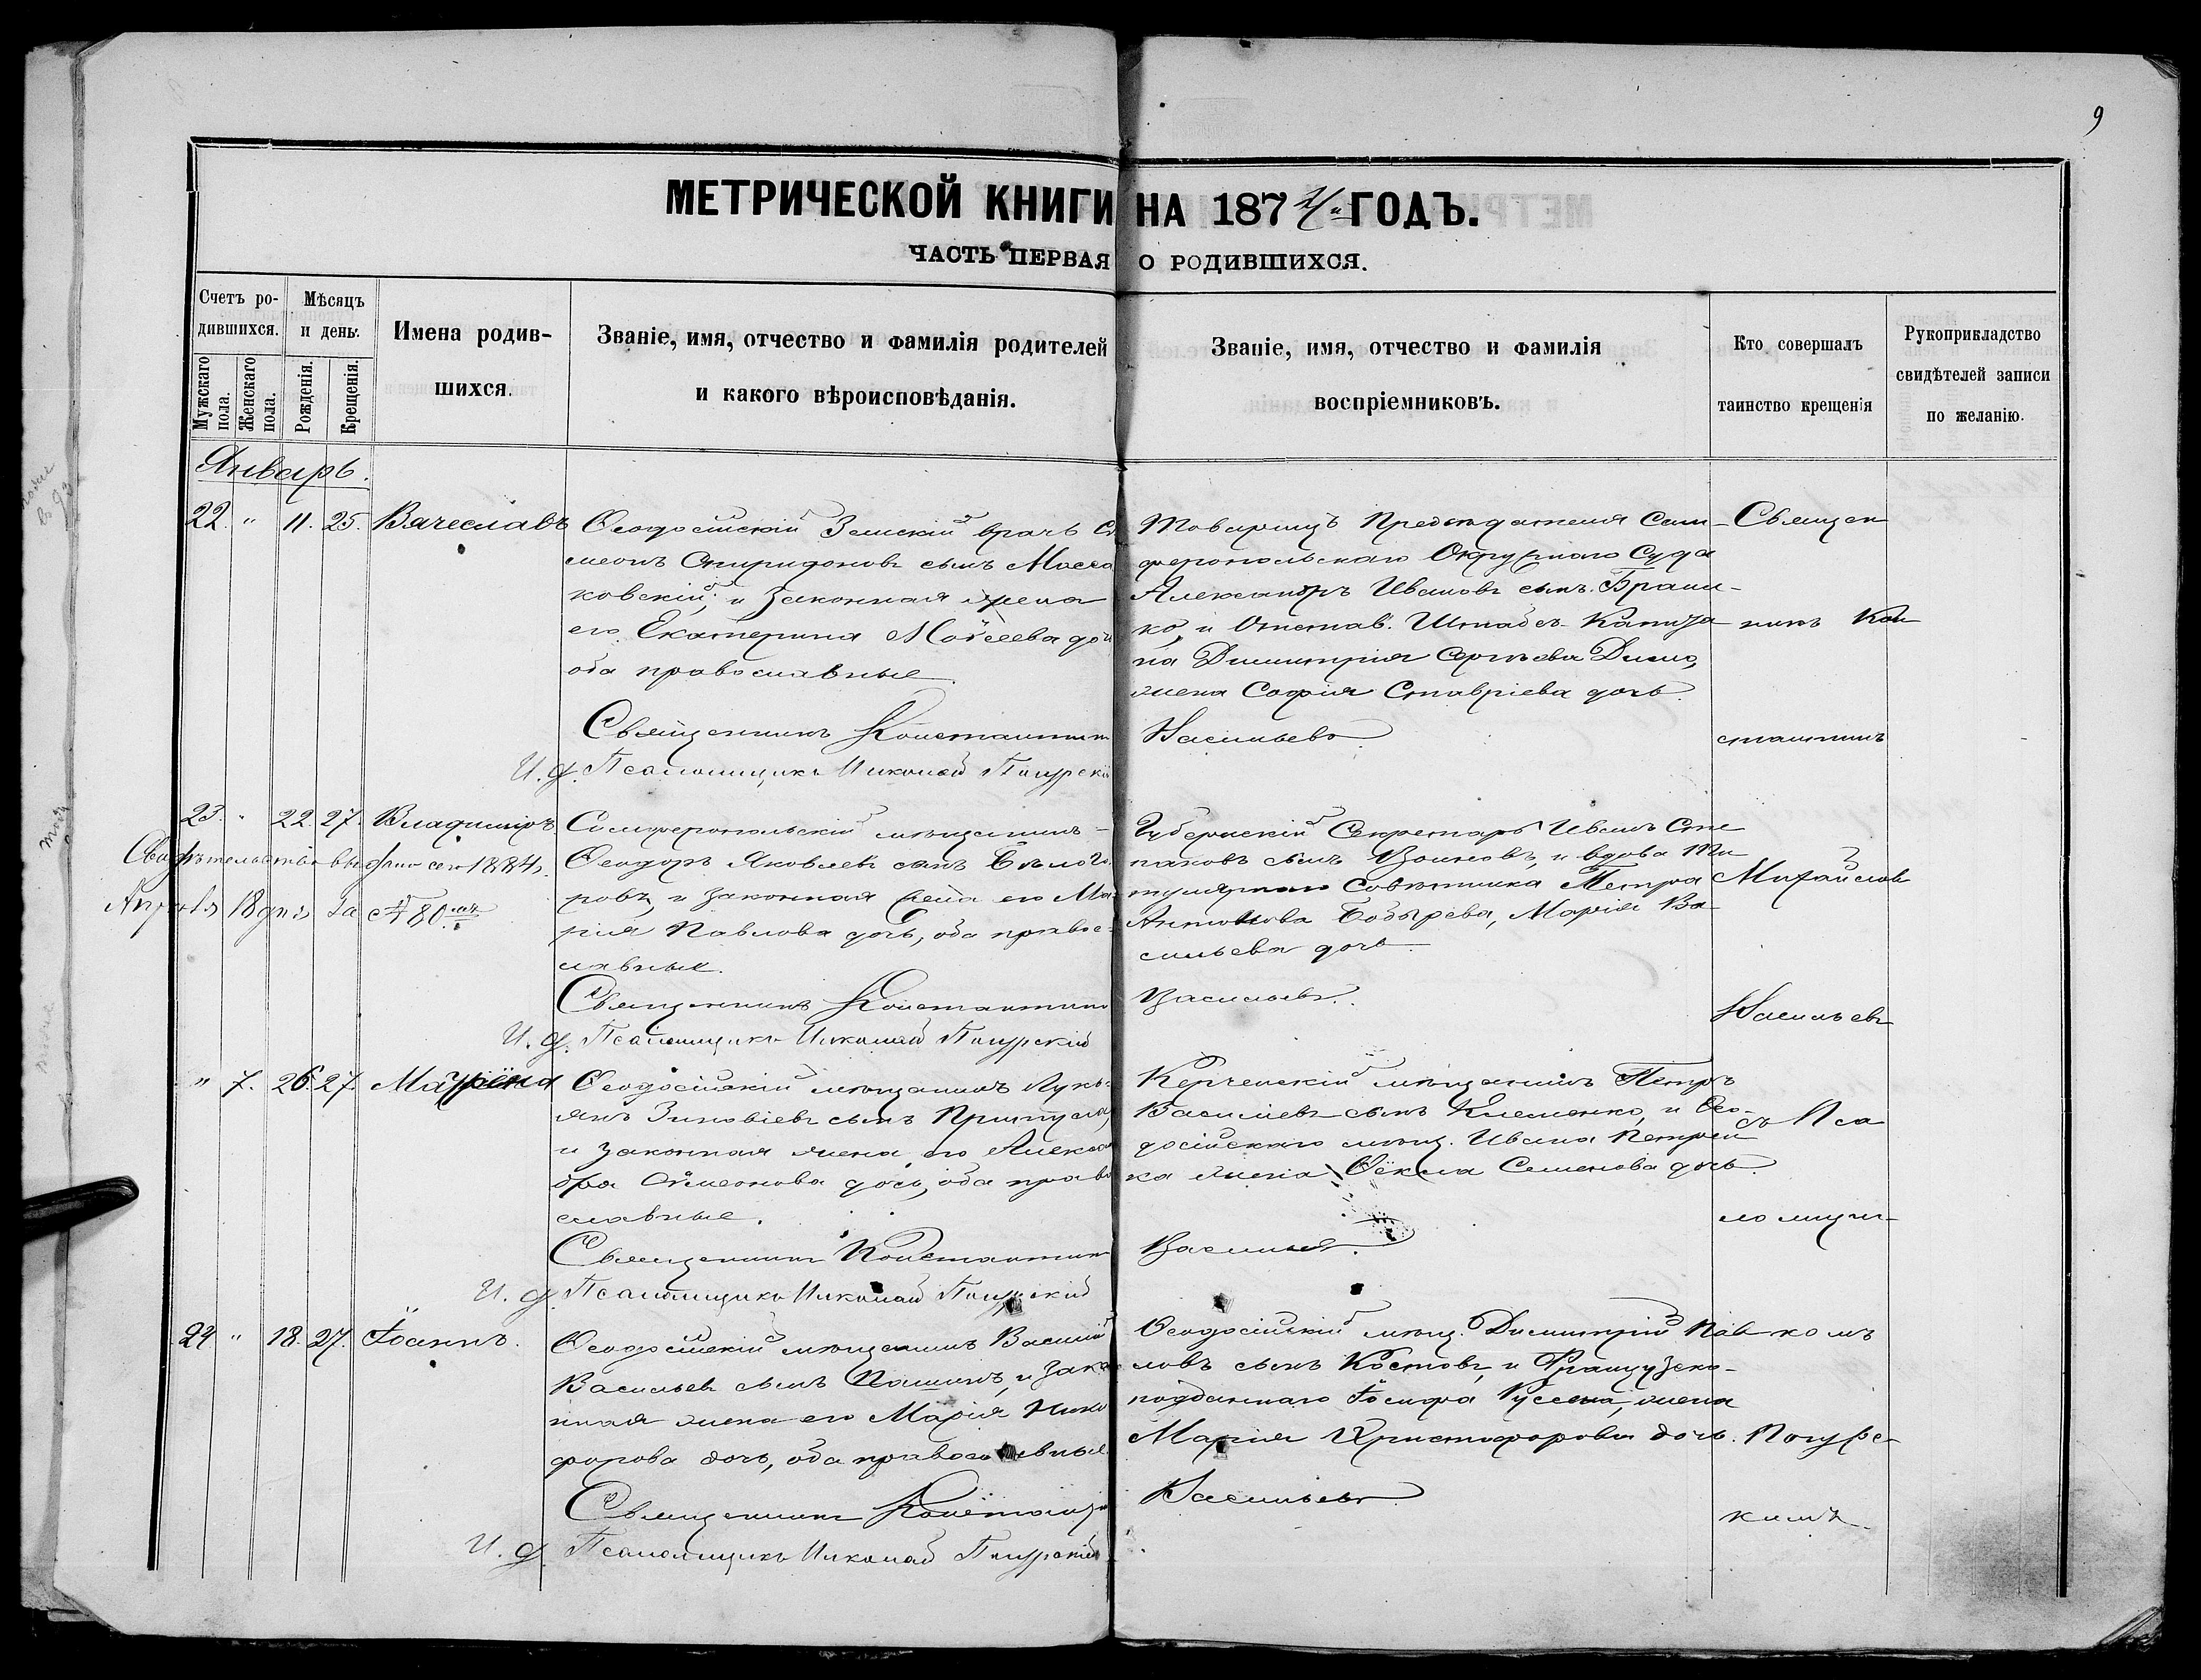 9
МЕТРИЧЕСКОЙ КНИГИ НА 1874й ГОДЪ.
ЧАСТЬ ПЕРВАЯ О РОДИВШИХСЯ.
Счетъ ро-
дившихся.
Мужскаго пола.
Женскаго пола.
Мѣсяцъ
и день.
Рожденія.
Крещенія.
Имена родив-
шихся.
Званіе, имя, отчество и фамилія родителей
и какого вѣроисповѣданія.
Званіе, имя, отчество и фамилія
воспріемниковъ.
Кто совершалъ
таинство крещенія
Рукоприкладство
свидѣтелей записи
по желанію.
Январь.
22. " 11. 25. Вячеславъ
Ѳеодосійскій Земскій врачъ Си
меонъ Спиридоновъ сынъ Масса
ковскій, и законная жена
его Екатерина Моѵсеева дочь
оба православные.
Священникъ Константинъ Васильевъ
И. д. Псаломщика Николай
Товарищъ Предсѣдателя Сим-
феропольскаго Окружнаго Суда
Александръ Ивановъ сынъ
и Отстав. Штабсъ-Капита
на Димитрія Сергѣева
жена Софія Ставріева дочь.
23. " 22. 27. Владиміръ
Свидѣтельство выдано сего 1884 г.
Апрѣля 18 дня за № 80.
Симферопольскій мѣщанинъ
Ѳеодоръ Яковлевъ сынъ
и законная жена его Ма-
рія Павлова дочь, оба право-
славные.
Священникъ Константинъ Васильевъ.
И. д. Псаломщика Николай
Губернскій Секретарь Иванъ Сте
пановъ сынъ и вдова Ти
тулярнаго Совѣтника Петра
Антонова Бобырева, Марія Ва-
сильева дочь.
" 7. 26. 27.
Ѳеодосійскій мѣщанинъ Лукь-
янъ Зиновіевъ сынъ Притула,
и законная жена его Алексан
дра Сѵмеонова дочь, оба право
славные.
Священникъ Константинъ Васильевъ.
И. д. Псаломщика Николай
Керченскій мѣщанинъ Петръ
Василіевъ сынъ Клеменко, и Ѳео-
досійскаго мѣщ. Ивана
жена Ѳекла Семенова дочь.
24 " 18. 27. Іоаннъ.
Ѳеодосійскій мѣщанинъ Василій
Васильевъ сынъ и зако
нная жена его Марія Ники
форова дочь, оба православные.
Священникъ Константинъ Васильевъ
И. д. Псаломщика Николай
Ѳеодосійскій мѣщ. Димитрій Пав
ловъ сынъ Костовъ, и Французско-
подданнаго Іосифа жена
Марія Христофорова дочь.
Священ
никъ Кон
стантинъ
Михайловъ
Васильевъ
съ Пса
ломщи-
комъ
кимъ.